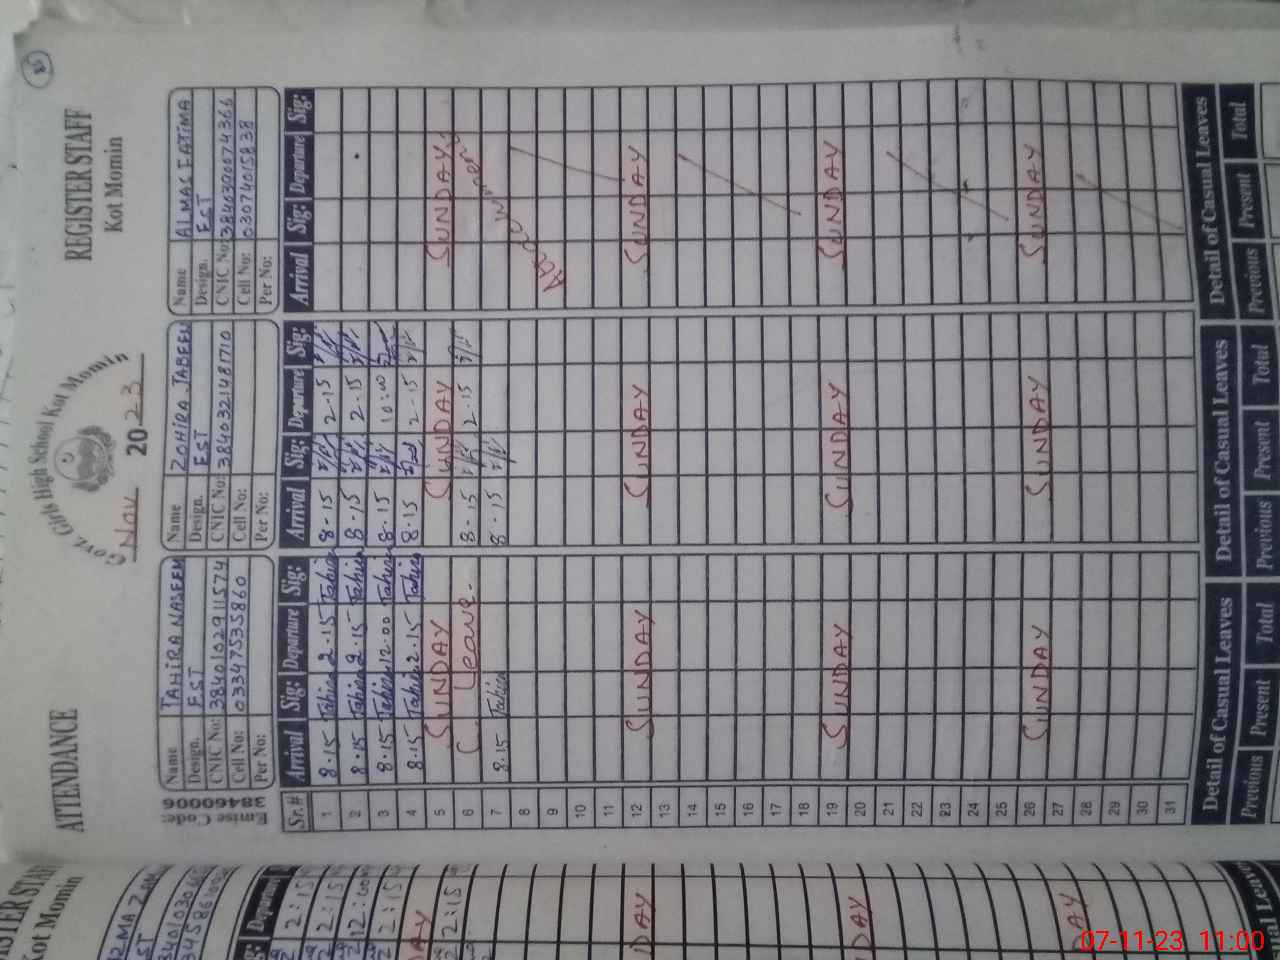 85
ATTENDANCE
REGISTER STAFF
Govt. Girls High School Kot Momin
Kot Momin
Nov 2023
Emise Code: 38460006
Name TAHIRA NASEEM
Design. EST
CNIC No: 3840102911574
Cell No: 03347535860
Per No:
Name ZOHIRA JABEEN
Design. EST
CNIC No: 3840321481710
Cell No:
Per No:
Name
Design. EST
CNIC No: 3840390074366
Cell No: 03074015838
Per No:
Sr.# Arrival Sig: Departure Sig: Arrival Sig: Departure Sig: Arrival Sig: Departure Sig:
1 8-15 Tahira 2-15 Tahira 8-15 2-15
2 8-15 Tahira 2-15 Tahira 8-15 2-15
3 8-15 Tahira 12-00 Tahira 8-15 10:00
4 8-15 Tahira 2-15 Tahira 8-15 2-15
5 SUNDAY SUNDAY SUNDAY
6 Leave 8-15 2-15
7 8-15 Tahira 8-15
8
9
10
11
12 SUNDAY SUNDAY SUNDAY
13
14
15
16
17
18
19 SUNDAY SUNDAY SUNDAY
20
21
22
23
24
25
26 SUNDAY SUNDAY SUNDAY
27
28
29
30
31
Detail of Casual Leaves Detail of Casual Leaves Detail of Casual Leaves
Previous Present Total Previous Present Total Previous Present Total
Kot Momin
Departure
2:15
2:15
12:00
2:15
DAY
2:15
DAY
DAY
DAY
07-11-23 11:00